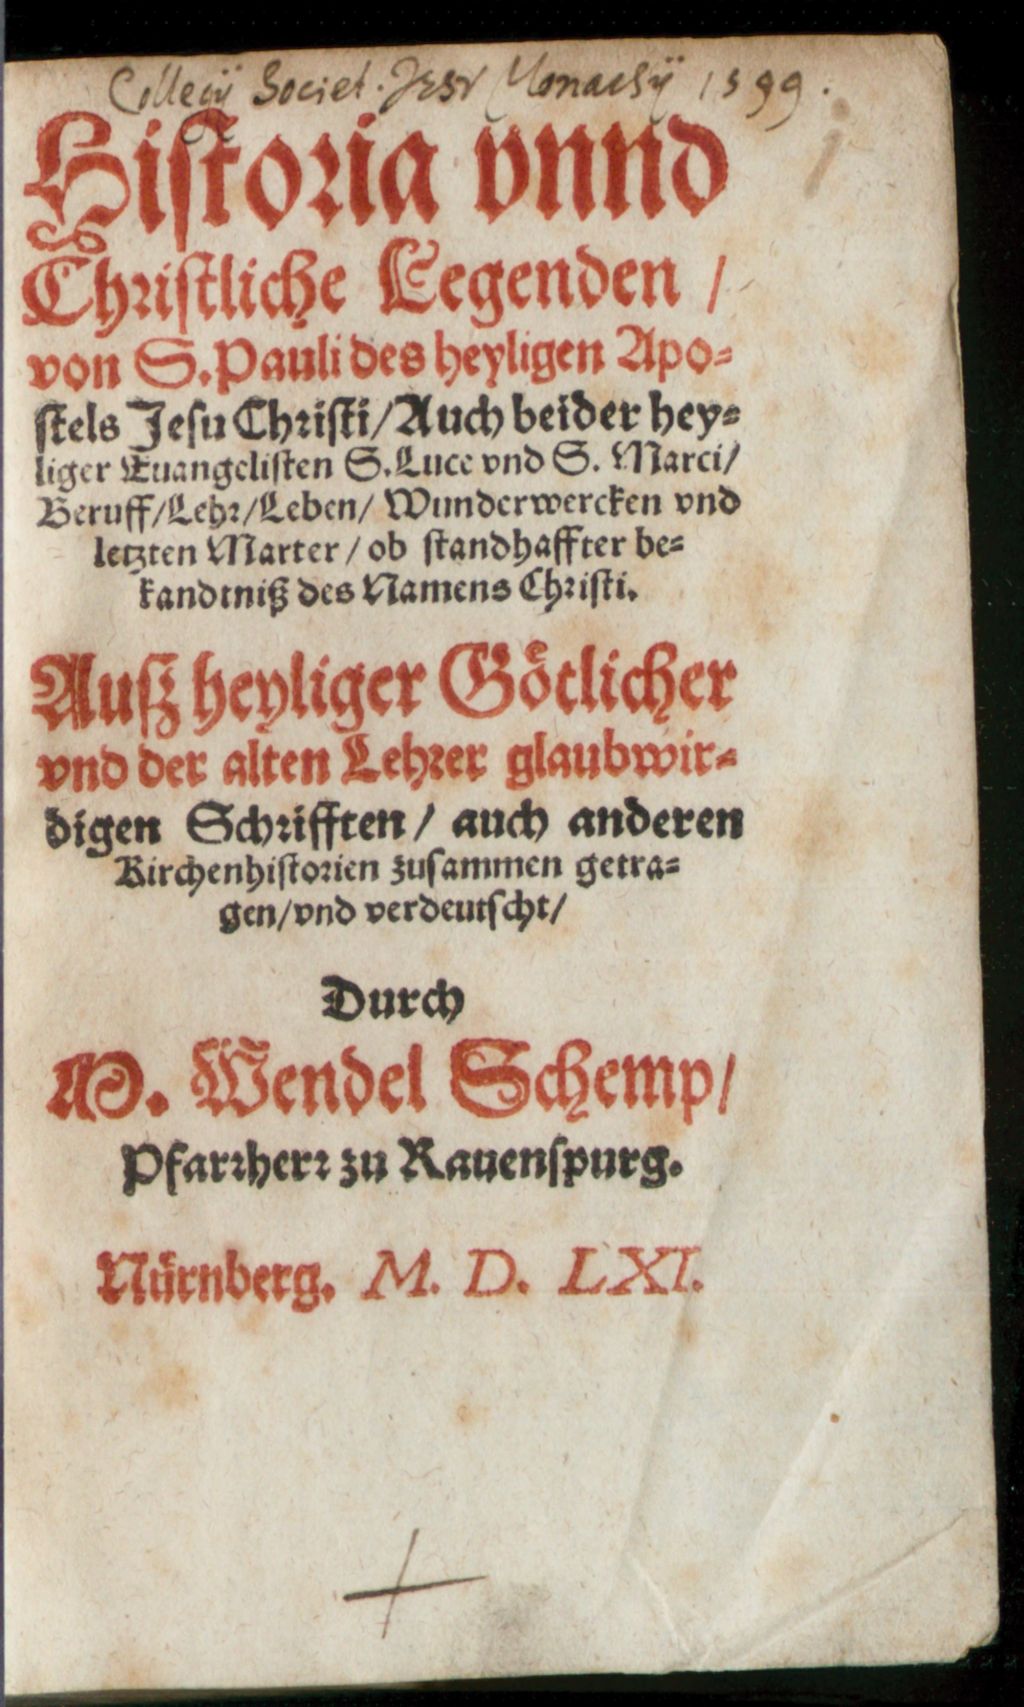 Collegij Societ. Jesv Monachij 1599.
Historia vnnd
Christliche Legenden /
von S. Pauli des heyligen Apo⸗
stels Jesu Christi / Auch beider hey⸗
liger Euangelisten S. Luce vnd S. Marci /
Beruff / Lehr / Leben / Wunderwercken vnd
letzten Marter / ob standhaffter be⸗
kandtniß des Namens Christi.
Auß heyliger Göttlicher
vnd der alten Lehrer glaubwir⸗
digen Schrifften / auch anderen
Kirchenhistorien zusammen getra⸗
gen / vnd verdeutscht /
Durch
M. Wendel Schemp /
Pfarrherr zu Rauenspurg.
Nürnberg. M. D. LXI.